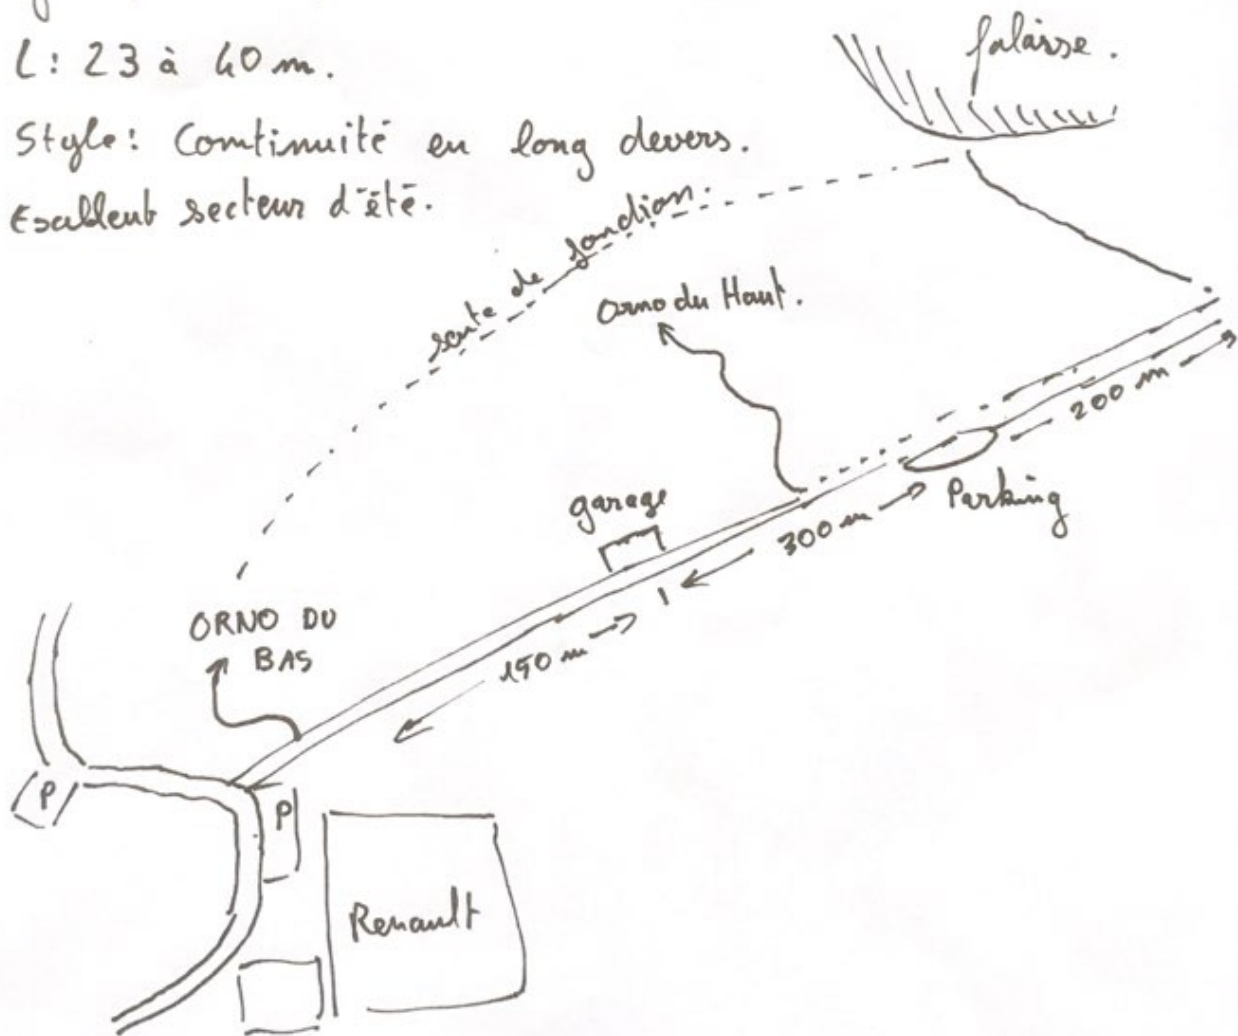 L: 23 à 40 m.
Style: Continuité en long devers.
Excellent secteur d'été.
falaisse.
sente de jondion.
Orno du Haut.
200 m
Parking
garage
300 m
ORNO DU
BAS
150 m
P
P
Renault